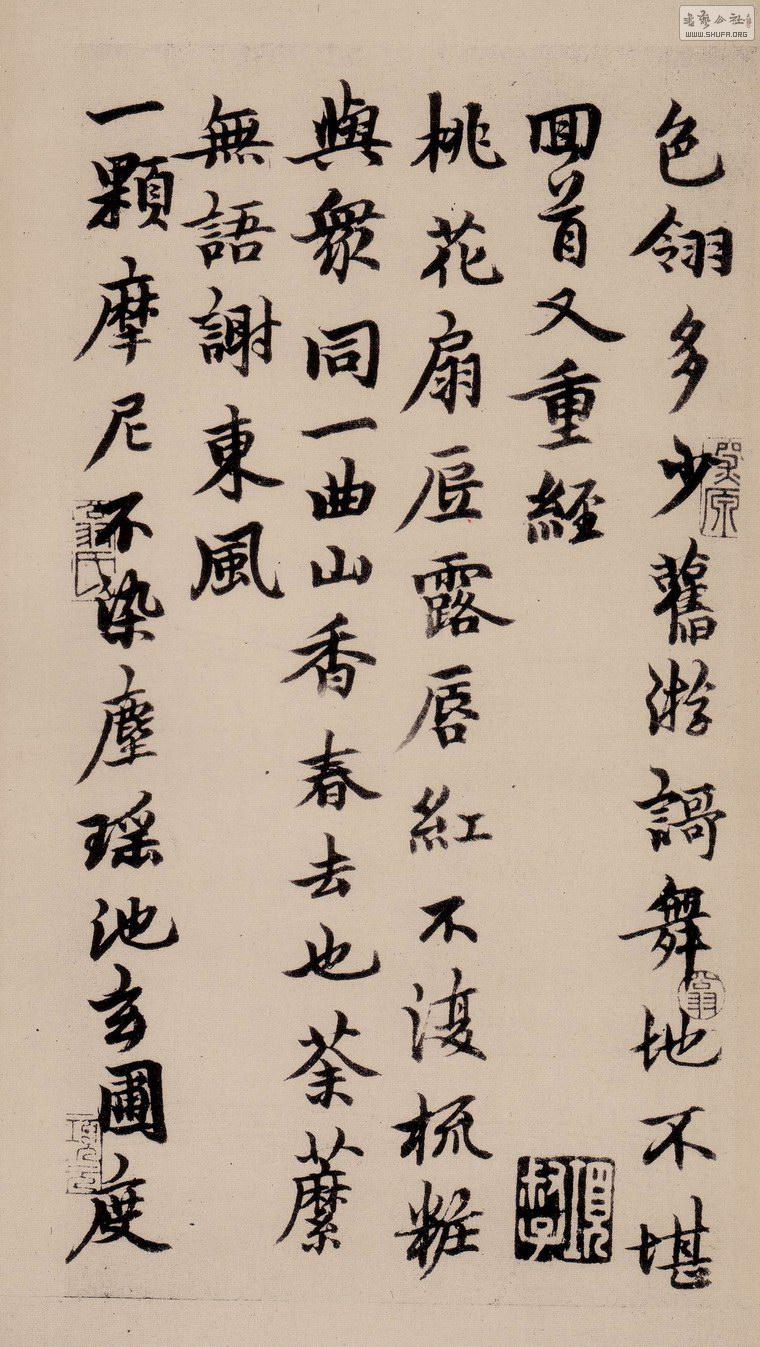 色翎多少舊游謌舞地不堪
回首又重經
桃花扇底露唇紅不復梳粧
與衆同一曲山香春去也荼䕷
無語謝東風
一顆摩尼不染塵瑶池玄圃度
书艺公社
WWW.SHUFA.ORG